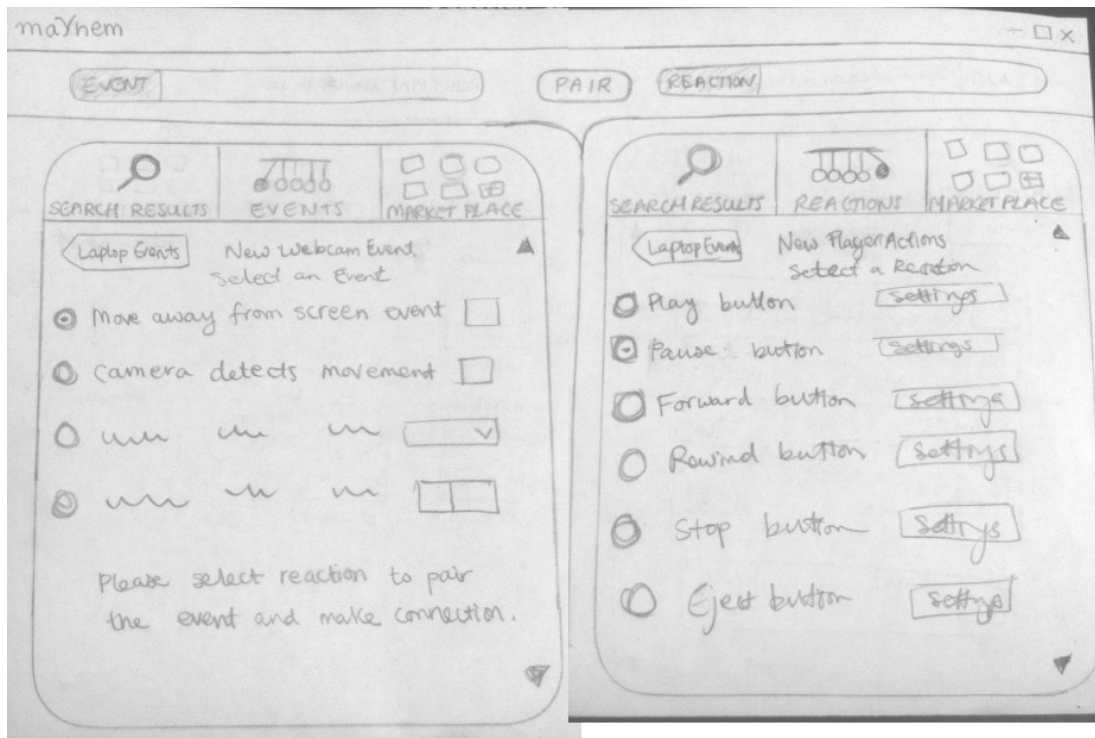 maYhem
EVENT
PAIR
REACTION
SEARCH RESULTS
EVENTS
MARKET PLACE
Laptop Events
New Webcam Event
Select an Event
Move away from screen event
camera detects movement
Please select reaction to pair
the event and make connection.
SEARCH RESULTS
REACTIONS
MARKET PLACE
Laptop Event
New Player Actions
Select a Reaction
Play button
Settings
Pause button
Settings
Forward button
Settings
Rewind button
Settings
Stop button
Settings
Eject button
Settings